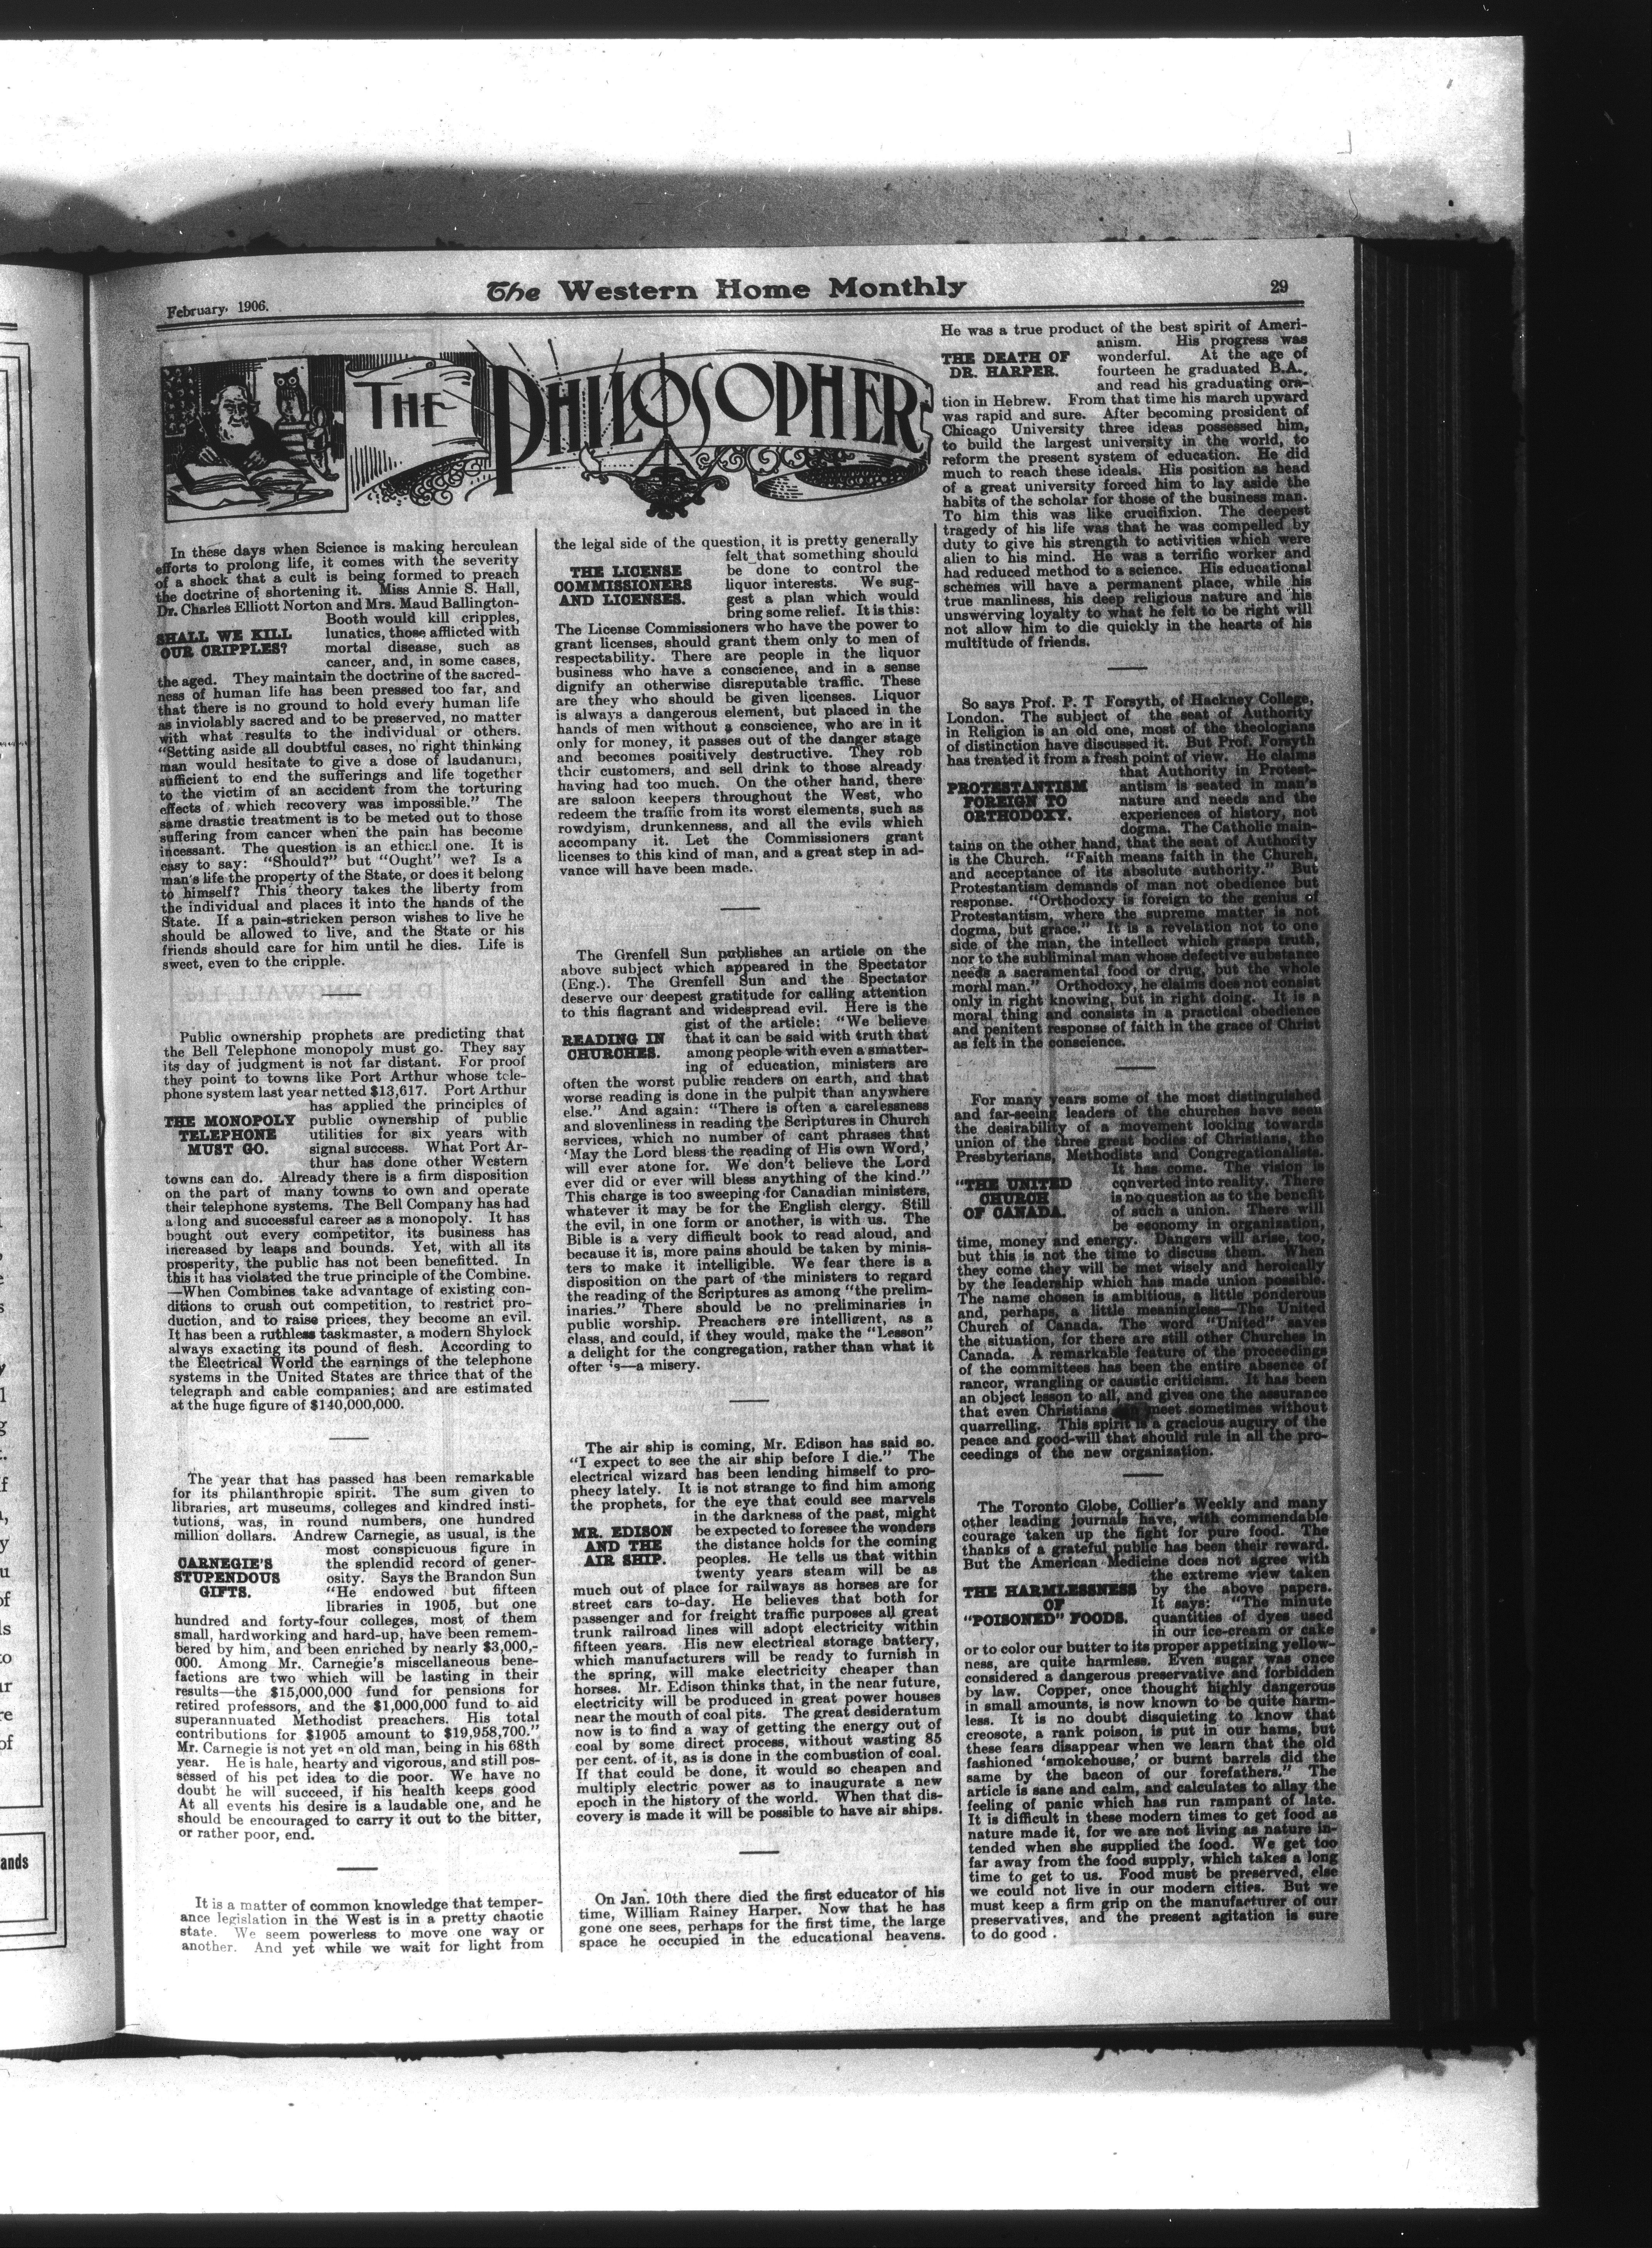 February, 1906.
The Western Home Monthly
29
THE PHILOSOPHER
In these days when Science is making herculean
efforts to prolong life, it comes with the severity
of a shock that a cult is being formed to preach
the doctrine of shortening it. Miss Annie S. Hall,
Dr. Charles Elliott Norton and Mrs. Maud Ballington-
Booth would kill cripples,
SHALL WE KILL
OUR CRIPPLES?
lunatics, those afflicted with
mortal disease, such as
cancer, and, in some cases,
the aged. They maintain the doctrine of the sacred-
ness of human life has been pressed too far, and
that there is no ground to hold every human life
as inviolably sacred and to be preserved, no matter
with what results to the individual or others.
"Setting aside all doubtful cases, no right thinking
man would hesitate to give a dose of laudanum,
sufficient to end the sufferings and life together
to the victim of an accident from the torturing
effects of which recovery was impossible." The
same drastic treatment is to be meted out to those
suffering from cancer when the pain has become
incessant. The question is an ethical one. It is
easy to say: "Should?" but "Ought" we? Is a
man's life the property of the State, or does it belong
to himself? This theory takes the liberty from
the individual and places it into the hands of the
State. If a pain-stricken person wishes to live he
should be allowed to live, and the State or his
friends should care for him until he dies. Life is
sweet, even to the cripple.
Public ownership prophets are predicting that
the Bell Telephone monopoly must go. They say
its day of judgment is not far distant. For proof
they point to towns like Port Arthur whose tele-
phone system last year netted $13,617. Port Arthur
has applied the principles of
THE MONOPOLY
TELEPHONE
MUST GO.
public ownership of public
utilities for six years with
signal success. What Port Ar-
thur has done other Western
towns can do. Already there is a firm disposition
on the part of many towns to own and operate
their telephone systems. The Bell Company has had
a long and successful career as a monopoly. It has
bought out every competitor, its business has
increased by leaps and bounds. Yet, with all its
prosperity, the public has not been benefitted. In
this it has violated the true principle of the Combine.
—When Combines take advantage of existing con-
ditions to crush out competition, to restrict pro-
duction, and to raise prices, they become an evil.
It has been a ruthless taskmaster, a modern Shylock
always exacting its pound of flesh. According to
the Electrical World the earnings of the telephone
systems in the United States are thrice that of the
telegraph and cable companies; and are estimated
at the huge figure of $140,000,000.
The year that has passed has been remarkable
for its philanthropic spirit. The sum given to
libraries, art museums, colleges and kindred insti-
tutions, was, in round numbers, one hundred
million dollars. Andrew Carnegie, as usual, is the
most conspicuous figure in
CARNEGIE'S
STUPENDOUS
GIFTS.
the splendid record of gener-
osity. Says the Brandon Sun
"He endowed but fifteen
libraries in 1905, but one
hundred and forty-four colleges, most of them
small, hardworking and hard-up, have been remem-
bered by him, and been enriched by nearly $3,000,-
000. Among Mr. Carnegie's miscellaneous bene-
factions are two which will be lasting in their
results—the $15,000,000 fund for pensions for
retired professors, and the $1,000,000 fund to aid
superannuated Methodist preachers. His total
contributions for $1905 amount to $19,958,700."
Mr. Carnegie is not yet an old man, being in his 68th
year. He is hale, hearty and vigorous, and still pos-
sessed of his pet idea to die poor. We have no
doubt he will succeed, if his health keeps good
At all events his desire is a laudable one, and he
should be encouraged to carry it out to the bitter,
or rather poor, end.
It is a matter of common knowledge that temper-
ance legislation in the West is in a pretty chaotic
state. We seem powerless to move one way or
another. And yet while we wait for light from
the legal side of the question, it is pretty generally
felt that something should
THE LICENSE
COMMISSIONERS
AND LICENSES.
be done to control the
liquor interests. We sug-
gest a plan which would
bring some relief. It is this:
The License Commissioners who have the power to
grant licenses, should grant them only to men of
respectability. There are people in the liquor
business who have a conscience, and in a sense
dignify an otherwise disreputable traffic. These
are they who should be given licenses. Liquor
is always a dangerous element, but placed in the
hands of men without a conscience, who are in it
only for money, it passes out of the danger stage
and becomes positively destructive. They rob
their customers, and sell drink to those already
having had too much. On the other hand, there
are saloon keepers throughout the West, who
redeem the traffic from its worst elements, such as
rowdyism, drunkenness, and all the evils which
accompany it. Let the Commissioners grant
licenses to this kind of man, and a great step in ad-
vance will have been made.
The Grenfell Sun publishes an article on the
above subject which appeared in the Spectator
(Eng.). The Grenfell Sun and the Spectator
deserve our deepest gratitude for calling attention
to this flagrant and widespread evil. Here is the
gist of the article: "We believe
READING IN
CHURCHES.
that it can be said with truth that
among people with even a smatter-
ing of education, ministers are
often the worst public readers on earth, and that
worse reading is done in the pulpit than anywhere
else." And again: "There is often a carelessness
and slovenliness in reading the Scriptures in Church
services, which no number of cant phrases that
'May the Lord bless the reading of His own Word,'
will ever atone for. We don't believe the Lord
ever did or ever will bless anything of the kind."
This charge is too sweeping for Canadian ministers,
whatever it may be for the English clergy. Still
the evil, in one form or another, is with us. The
Bible is a very difficult book to read aloud, and
because it is, more pains should be taken by minis-
ters to make it intelligible. We fear there is a
disposition on the part of the ministers to regard
the reading of the Scriptures as among "the prelim-
inaries." There should be no preliminaries in
public worship. Preachers are intelligent, as a
class, and could, if they would, make the "Lesson"
a delight for the congregation, rather than what it
often is—a misery.
The air ship is coming, Mr. Edison has said so.
"I expect to see the air ship before I die." The
electrical wizard has been lending himself to pro-
phecy lately. It is not strange to find him among
the prophets, for the eye that could see marvels
in the darkness of the past, might
MR. EDISON
AND THE
AIR SHIP.
be expected to foresee the wonders
the distance holds for the coming
peoples. He tells us that within
twenty years steam will be as
much out of place for railways as horses are for
street cars to-day. He believes that both for
passenger and for freight traffic purposes all great
trunk railroad lines will adopt electricity within
fifteen years. His new electrical storage battery,
which manufacturers will be ready to furnish in
the spring, will make electricity cheaper than
horses. Mr. Edison thinks that, in the near future,
electricity will be produced in great power houses
near the mouth of coal pits. The great desideratum
now is to find a way of getting the energy out of
coal by some direct process, without wasting 85
per cent. of it, as is done in the combustion of coal.
If that could be done, it would so cheapen and
multiply electric power as to inaugurate a new
epoch in the history of the world. When that dis-
covery is made it will be possible to have air ships.
On Jan. 10th there died the first educator of his
time, William Rainey Harper. Now that he has
gone one sees, perhaps for the first time, the large
space he occupied in the educational heavens.
He was a true product of the best spirit of Ameri-
anism. His progress was
THE DEATH OF
DR. HARPER.
wonderful. At the age of
fourteen he graduated B.A.,
and read his graduating ora-
tion in Hebrew. From that time his march upward
was rapid and sure. After becoming president of
Chicago University three ideas possessed him,
to build the largest university in the world, to
reform the present system of education. He did
much to reach these ideals. His position as head
of a great university forced him to lay aside the
habits of the scholar for those of the business man.
To him this was like crucifixion. The deepest
tragedy of his life was that he was compelled by
duty to give his strength to activities which were
alien to his mind. He was a terrific worker and
had reduced method to a science. His educational
schemes will have a permanent place, while his
true manliness, his deep religious nature and his
unswerving loyalty to what he felt to be right will
not allow him to die quickly in the hearts of his
multitude of friends.
So says Prof. P. T Forsyth, of Hackney College,
London. The subject of the seat of Authority
in Religion is an old one, most of the theologians
of distinction have discussed it. But Prof. Forsyth
has treated it from a fresh point of view. He claims
that Authority in Protest-
PROTESTANTISM
FOREIGN TO
ORTHODOXY.
antism is seated in man's
nature and needs and the
experiences of history, not
dogma. The Catholic main-
tains on the other hand, that the seat of Authority
is the Church. "Faith means faith in the Church,
and acceptance of its absolute authority." But
Protestantism demands of man not obedience but
response. "Orthodoxy is foreign to the genius of
Protestantism, where the supreme matter is not
dogma, but grace." It is a revelation not to one
side of the man, the intellect which grasps truth,
nor to the subliminal man whose defective substance
needs a sacramental food or drug, but the whole
moral man." Orthodoxy, he claims does not consist
only in right knowing, but in right doing. It is a
moral thing and consists in a practical obedience
and penitent response of faith in the grace of Christ
as felt in the conscience.
For many years some of the most distinguished
and far-seeing leaders of the churches have seen
the desirability of a movement looking towards
union of the three great bodies of Christians, the
Presbyterians, Methodists and Congregationalists.
It has come. The vision is
"THE UNITED
CHURCH
OF CANADA.
converted into reality. There
is no question as to the benefit
of such a union. There will
be economy in organization,
time, money and energy. Dangers will arise, too,
but this is not the time to discuss them. When
they come they will be met wisely and heroically
by the leadership which has made union possible.
The name chosen is ambitious, a little ponderous
and, perhaps, a little meaningless—The United
Church of Canada. The word "United" saves
the situation, for there are still other Churches in
Canada. A remarkable feature of the proceedings
of the committees has been the entire absence of
rancor, wrangling or caustic criticism. It has been
an object lesson to all, and gives one the assurance
that even Christians meet sometimes without
quarrelling. This spirit is a gracious augury of the
peace and good-will that should rule in all the pro-
ceedings of the new organization.
The Toronto Globe, Collier's Weekly and many
other leading journals have, with commendable
courage taken up the fight for pure food. The
thanks of a grateful public has been their reward.
But the American Medicine does not agree with
the extreme view taken
THE HARMLESSNESS
OF
"POISONED" FOODS.
by the above papers.
It says: "The minute
quantities of dyes used
in our ice-cream or cake
or to color our butter to its proper appetizing yellow-
ness, are quite harmless. Even sugar was once
considered a dangerous preservative and forbidden
by law. Copper, once thought highly dangerous
in small amounts, is now known to be quite harm-
less. It is no doubt disquieting to know that
creosote, a rank poison, is put in our hams, but
these fears disappear when we learn that the old
fashioned 'smokehouse,' or burnt barrels did the
same by the bacon of our forefathers." The
article is sane and calm, and calculates to allay the
feeling of panic which has run rampant of late.
It is difficult in these modern times to get food as
nature made it, for we are not living as nature in-
tended when she supplied the food. We get too
far away from the food supply, which takes a long
time to get to us. Food must be preserved, else
we could not live in our modern cities. But we
must keep a firm grip on the manufacturer of our
preservatives, and the present agitation is sure
to do good .